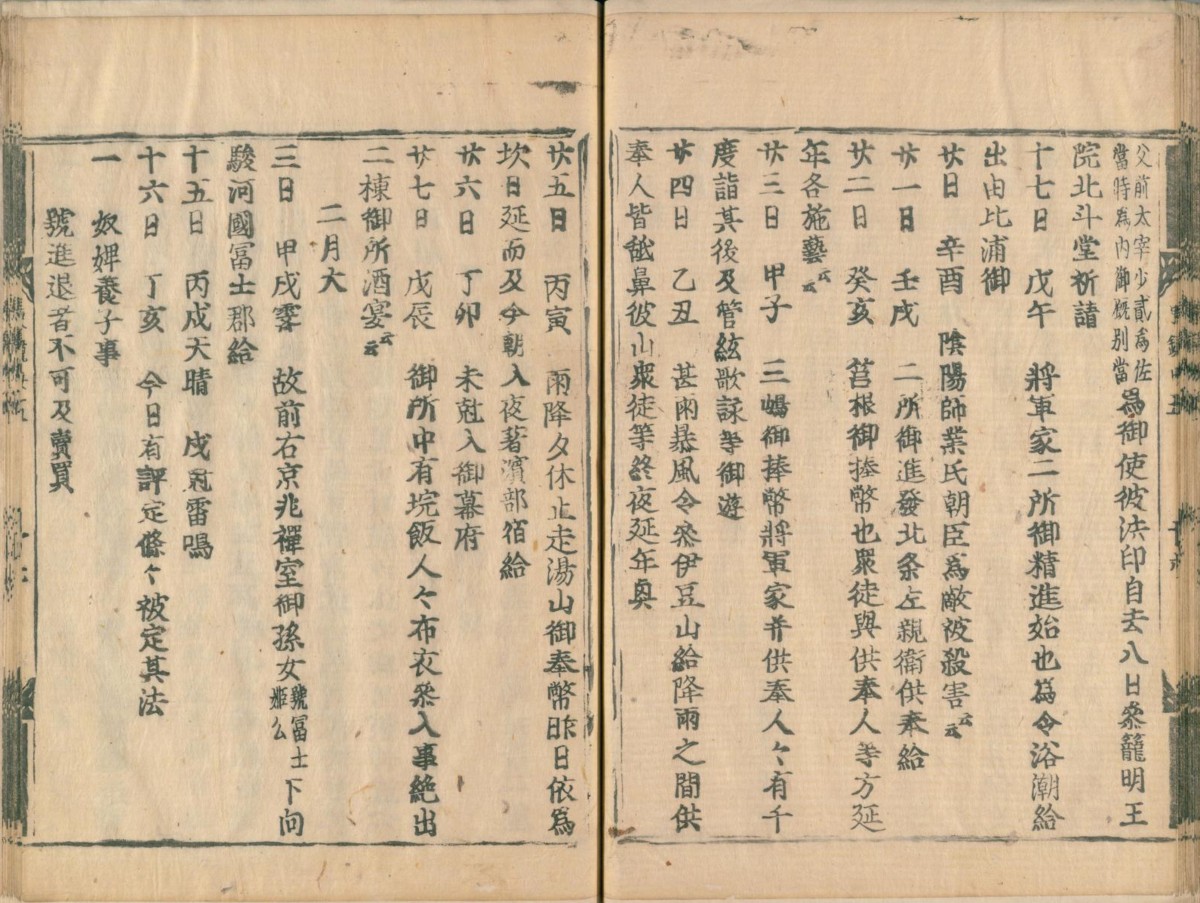 父前太宰少貳為佐
當時為内御厩別當為御使彼法印自去八日叅籠明王
院北斗堂祈請
十七日　戊午　將軍家二所御精進始也為令浴潮給
出由比浦御
廿日　辛酉　陰陽師業氏朝臣為敵被殺害云云
廿一日　壬戌　二所御進發北条左親衛供奉給
廿二日　癸亥　筥根御捧幣也衆徒與供奉人等方延
年各施藝云云
廿三日　甲子　三嶋御捧幣將軍家并供奉人々有千
度詣其後及管絃歌詠等御遊
廿四日　乙丑　甚雨暴風令叅伊豆山給降雨之間供
奉人皆舐鼻彼山衆徒等終夜延年奐
廿五日　丙寅　雨降夕休止走湯山御奉幣昨日依為
坎日延而及今朝入夜著濱部宿給
廿六日　丁卯　未尅入御幕府
廿七日　戊辰　御所中有垸飯人々布衣叅入事絶出
二棟御所酒宴云云
二月大
三日　甲戌霽　故前右京兆禪室御孫女號冨士姫公下向
駿河國冨士郡給
十五日　丙戌天晴　戌尅雷鳴
十六日　丁亥　今日有評定條々被定其法
一　奴婢養子事
號進退者不可及賣買